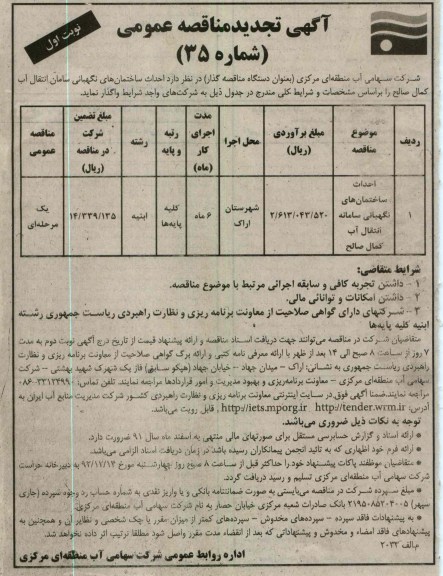 نوبت اول
آگهی تجدیدمناقصه عمومی
(شماره ۳۵)
شرکت سهامی آب منطقه‌ای مرکزی (بعنوان دستگاه مناقصه گذار) در نظر دارد احداث ساختمان‌های نگهبانی سامان انتقال آب
کمال صالح را براساس مشخصات و شرایط کلی مندرج در جدول ذیل به شرکت‌های واجد شرایط واگذار نماید.
ردیف | موضوع مناقصه | مبلغ برآوردی (ریال) | محل اجرا | مدت اجرای کار (ماه) | رتبه و پایه | رشته | مبلغ تضمین شرکت در مناقصه (ریال) | مناقصه عمومی
۱ | احداث ساختمان‌های نگهبانی سامانه انتقال آب کمال صالح | ۲/۶۱۳/۰۴۳/۵۲۰ | شهرستان اراک | ۶ ماه | کلیه پایه‌ها | ابنیه | ۱۴/۳۳۹/۱۳۵ | یک مرحله‌ای
شرایط متقاضی:
۱ - داشتن تجربه کافی و سابقه اجرائی مرتبط با موضوع مناقصه.
۲ - داشتن امکانات و توانائی مالی.
۳ - شرکتهای دارای گواهی صلاحیت از معاونت برنامه ریزی و نظارت راهبردی ریاست جمهوری رشته
ابنیه کلیه پایه‌ها
متقاضیان شرکت در مناقصه می‌توانند جهت دریافت اسناد مناقصه و ارائه پیشنهاد قیمت از تاریخ درج آگهی نوبت دوم به مدت
۷ روز از ساعت ۸ صبح الی ۱۴ بعد از ظهر با ارائه معرفی نامه کتبی و ارائه برگ گواهی صلاحیت از معاونت برنامه ریزی و نظارت
راهبردی ریاست جمهوری به نشانی: اراک - میدان جهاد - خیابان جهاد (هپکو سابق) فاز یک شهرک شهید بهشتی - شرکت
سهامی آب منطقه‌ای مرکزی - معاونت برنامه‌ریزی و بهبود مدیریت و امور قراردادها مراجعه نمایند. تلفن تماس: ۳۳۱۲۴۹۹-۰۸۶
مراجعه نمایند.ضمنا آگهی فوق در سایت اینترنتی معاونت برنامه ریزی و نظارت راهبردی کشور شرکت مدیریت منابع آب ایران به
آدرس: http://tender.wrm.ir http://iets.mporg.ir قابل رویت می‌باشد.
توجه به نکات ذیل ضروری می‌باشد.
* ارائه اسناد و گزارش حسابرسی مستقل برای صورتهای مالی منتهی به اسفند ماه سال ۹۱ ضرورت دارد.
* ارائه فرم خود اظهاری که به تائید انجمن پیمانکاران رسیده باشد در زمان دریافت اسناد الزامی می‌باشد.
* متقاضیان موظفند پاکات پیشنهاد خود را حداکثر قبل از ساعت ۸ صبح روز چهارشنبه مورخ ۹۲/۱۲/۱۴ به دبیرخانه حراست
شرکت سهامی آب منطقه‌ای مرکزی تسلیم و رسید دریافت گردد.
* مبلغ سپرده شرکت در مناقصه می‌بایستی به صورت ضمانتنامه بانکی و یا واریز نقدی به شماره حساب رد وجوه سپرده (جاری
سپهر) ۲۱۹۵۰۸۵۲۰۳۰۰۵ بانک صادرات شعبه مرکزی خیابان حصار به نام شرکت سهامی آب منطقه‌ای مرکزی.
* به پیشنهادات فاقد سپرده - سپرده‌های مخدوش - سپرده‌های کمتر از میزان مقرر یا چک شخصی و نظایر آن و همچنین به
پیشنهادهای فاقد امضاء و مخدوش و پیشنهاداتی که بعد از انقضاء مدت مقرر واصل شود مطلقا ترتیب اثر داده نخواهد شد.
م.الف ۲۰۳۲
اداره روابط عمومی شرکت سهامی آب منطقه‌ای مرکزی